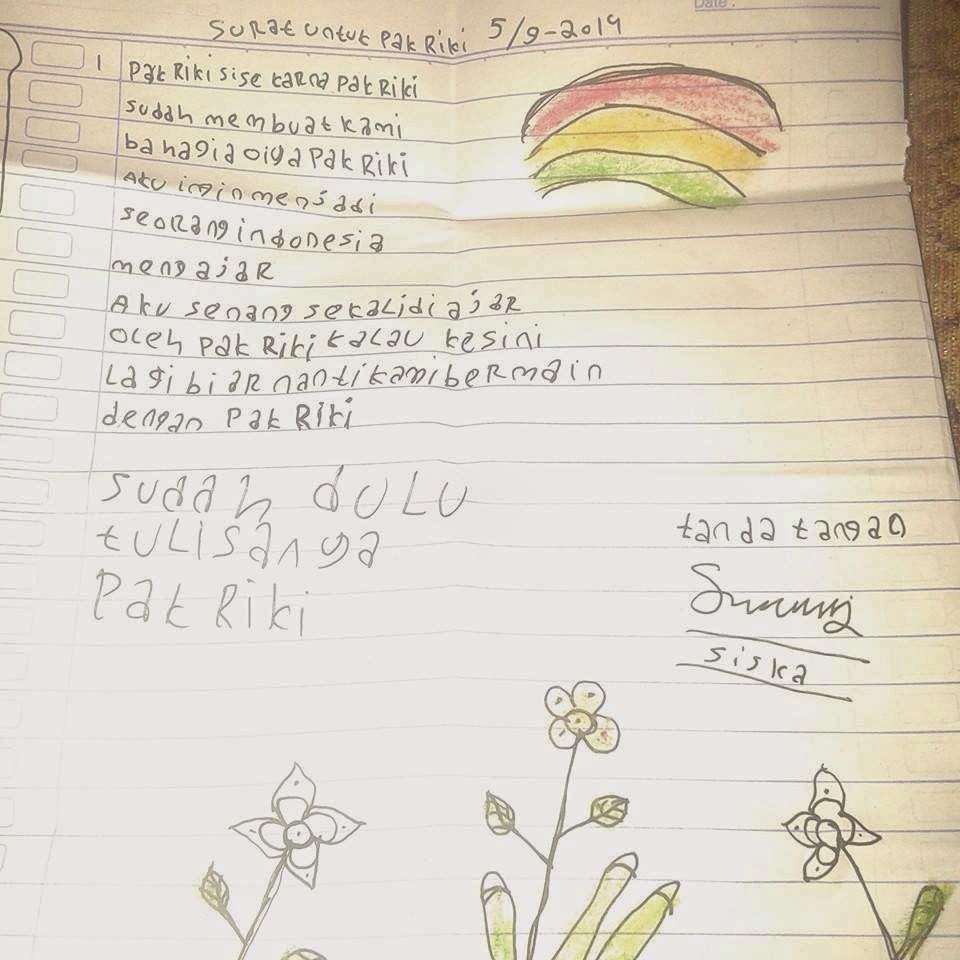 Date:
Surat untuk Pak Riki 5/9-2014
1 Pak Riki sise karna Pak Riki
sudah membuat kami
bahagia oiya Pak Riki
Aku ingin menjadi
seorang indonesia
mengajar
Aku senang sekali di ajar
oleh Pak Riki kalau kesini
Lagi biar nanti kami bermain
dengan Pak Riki
sudah dulu
tulisanya
Pak Riki
tanda tangan
siska